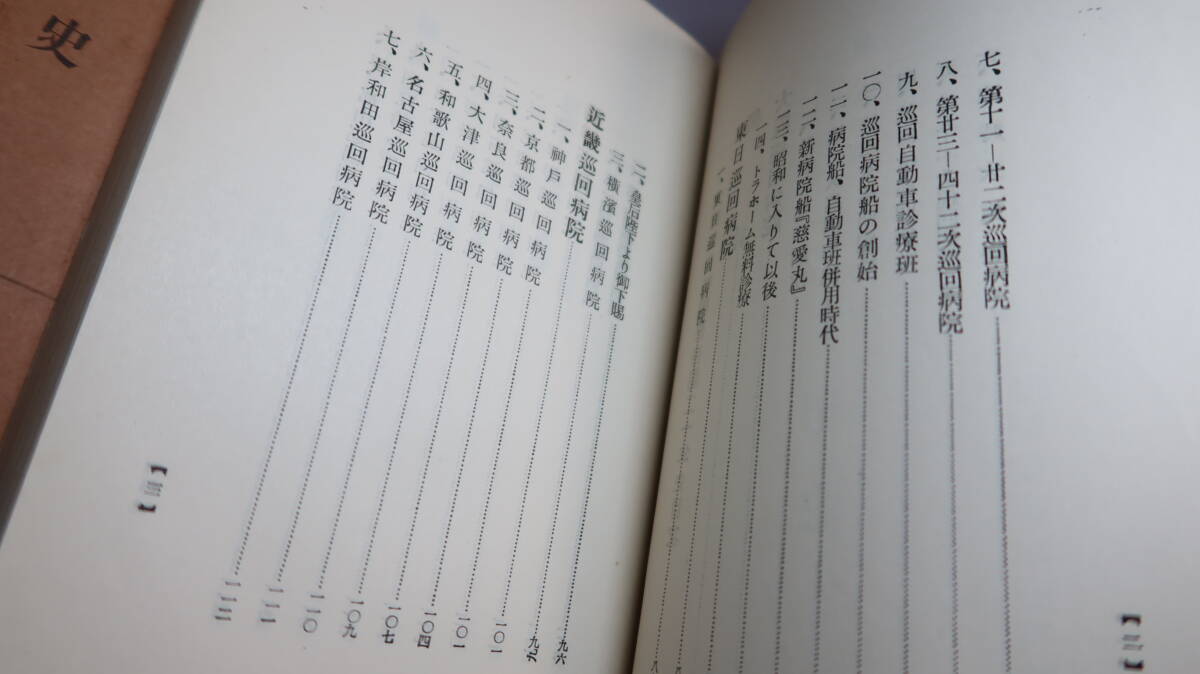 七、第十一―廿二次巡回病院
八、第廿三―四十二次巡回病院
九、巡回自動車診療班
一〇、巡回病院船の創始
一一、病院船、自動車班併用時代
一二、新病院船『慈愛丸』
一三、昭和に入りて以後
一四、トラホーム無料診療
東日巡回病院
一、東日巡回病院
【二】
二、皇后陛下より御下賜 九六
三、横濱巡回病院 九九
近畿巡回病院 一〇一
一、神戸巡回病院 一〇一
二、京都巡回病院 一〇四
三、奈良巡回病院 一〇七
四、大津巡回病院 一〇九
五、和歌山巡回病院 一一〇
六、名古屋巡回病院 一一一
七、岸和田巡回病院 一一二
【三】
史